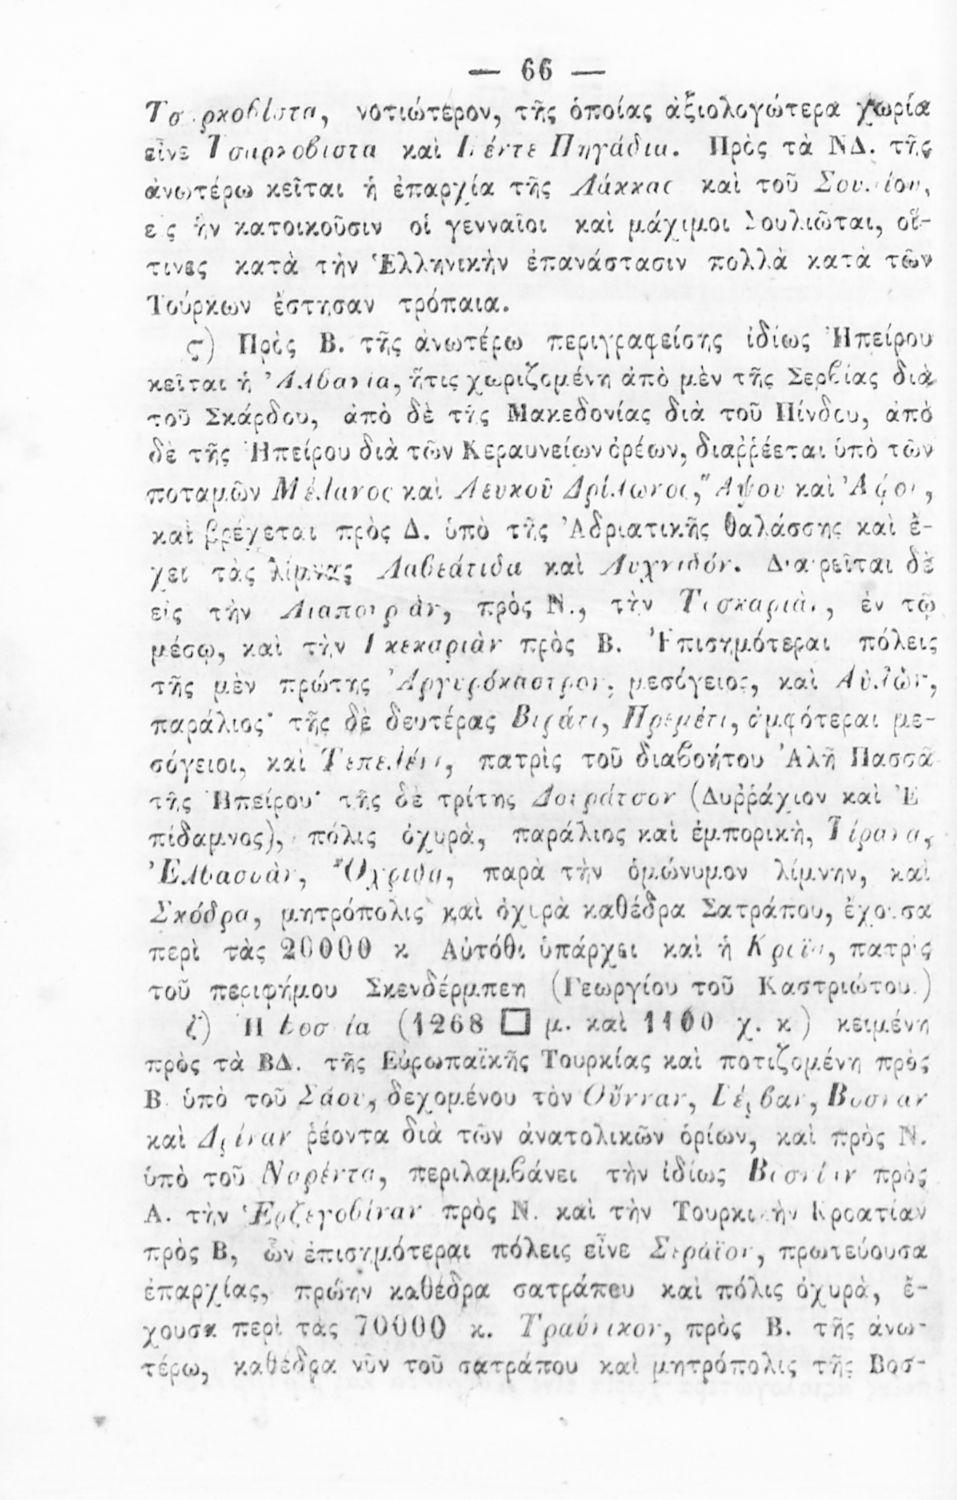 — 66 —
νοτιώτερον, τῆς ὁποίας ἀξιολογώτερα χωρία
εἶνε Τσαρκοβιστα καὶ Πέντε Πηγάδια. Πρὸς τὰ ΝΔ. τῆς
ἀνωτέρω κεῖται ἡ ἐπαρχία τῆς Λάκκας καὶ τοῦ Σουλίου,
εἰς ἣν κατοικοῦσιν οἱ γενναῖοι καὶ μάχιμοι Σουλιῶται, οἵ-
τινες κατὰ τὴν Ἑλληνικὴν ἐπανάστασιν πολλὰ κατὰ τῶν
Τούρκων ἔστησαν τρόπαια.
ς) Πρὸς Β. τῆς ἀνωτέρω περιγραφείσης ἰδίως Ἠπείρου
κεῖται ἡ Ἀλβανία, ἥτις χωριζομένη ἀπὸ μὲν τῆς Σερβίας διὰ
τοῦ Σκάρδου, ἀπὸ δὲ τῆς Μακεδονίας διὰ τοῦ Πίνδου, ἀπὸ
δὲ τῆς Ἠπείρου διὰ τῶν Κεραυνείων ὀρέων, διαῤῥέεται ὑπὸ τῶν
ποταμῶν Μέλανος καὶ Λευκοῦ Δρίλωνος, Ἄψου καὶ Ἀῴου,
καὶ βρέχεται πρὸς Δ. ὑπὸ τῆς Ἀδριατικῆς θαλάσσης καὶ ἔ-
χει τὰς λίμνας Λαβεάτιδα καὶ Λυχνιδόν. Διαιρεῖται δὲ
εἰς τὴν Λιαπουριὰν, πρὸς Ν., τὴν Τοσκαριὰν, ἐν τῷ
μέσῳ, καὶ τὴν Γκεκαριὰν πρὸς Β. Ἐπισημότεραι πόλεις
τῆς μὲν πρώτης Ἀργυρόκαστρον, μεσόγειος, καὶ Αὐλὼν,
παράλιος· τῆς δὲ δευτέρας Βεράτι, Πρεμέτι, ἀμφότεραι με-
σόγειοι, καὶ Τεπελένι, πατρὶς τοῦ διαβοήτου Ἀλῆ Πασσᾶ
τῆς Ἠπείρου· τῆς δὲ τρίτης Δουράτσον (Δυῤῥάχιον καὶ Ἐ
πίδαμνος), πόλις ὀχυρὰ, παράλιος καὶ ἐμπορικὴ, Τίρανα,
Ἐλβασσὰν, Ὄχριδα, παρὰ τὴν ὁμώνυμον λίμνην, καὶ
Σκόδρα, μητρόπολις καὶ ὀχυρὰ καθέδρα Σατράπου, ἔχουσα
περὶ τὰς 20000 κ Αὐτόθι ὑπάρχει καὶ ἡ πατρὶς
τοῦ περιφήμου Σκενδέρμπεη (Γεωργίου τοῦ Καστριώτου.)
ζ) Ἡ Βοσνία (1268 □ μ. καὶ 1100 χ. κ) κειμένη
πρὸς τὰ ΒΔ. τῆς Εὐρωπαϊκῆς Τουρκίας καὶ ποτιζομένη πρὸς
Β ὑπὸ τοῦ Σάου, δεχομένου τὸν Οὔνναν, Βέρβαν, Βοσναν
καὶ Δρίναν ῥέοντα διὰ τῶν ἀνατολικῶν ὁρίων, καὶ πρὸς Ν.
ὑπὸ τοῦ Ναρέντα, περιλαμβάνει τὴν ἰδίως Βοσνίαν πρὸς
Α. τὴν Ἐρζεγοβίναν πρὸς Ν. καὶ τὴν Τουρκικὴν Κροατίαν
πρὸς Β, ὧν ἐπισημότεραι πόλεις εἶνε Σεράϊον, πρωτεύουσα
ἐπαρχίας, πρώην καθέδρα σατράπου καὶ πόλις ὀχυρὰ, ἔ-
χουσα περὶ τὰς 70000 κ. Τραύνικον, πρὸς Β. τῆς ἀνω-
τέρω, καθέδρα νῦν τοῦ σατράπου καὶ μητρόπολις τῆς Βοσ-